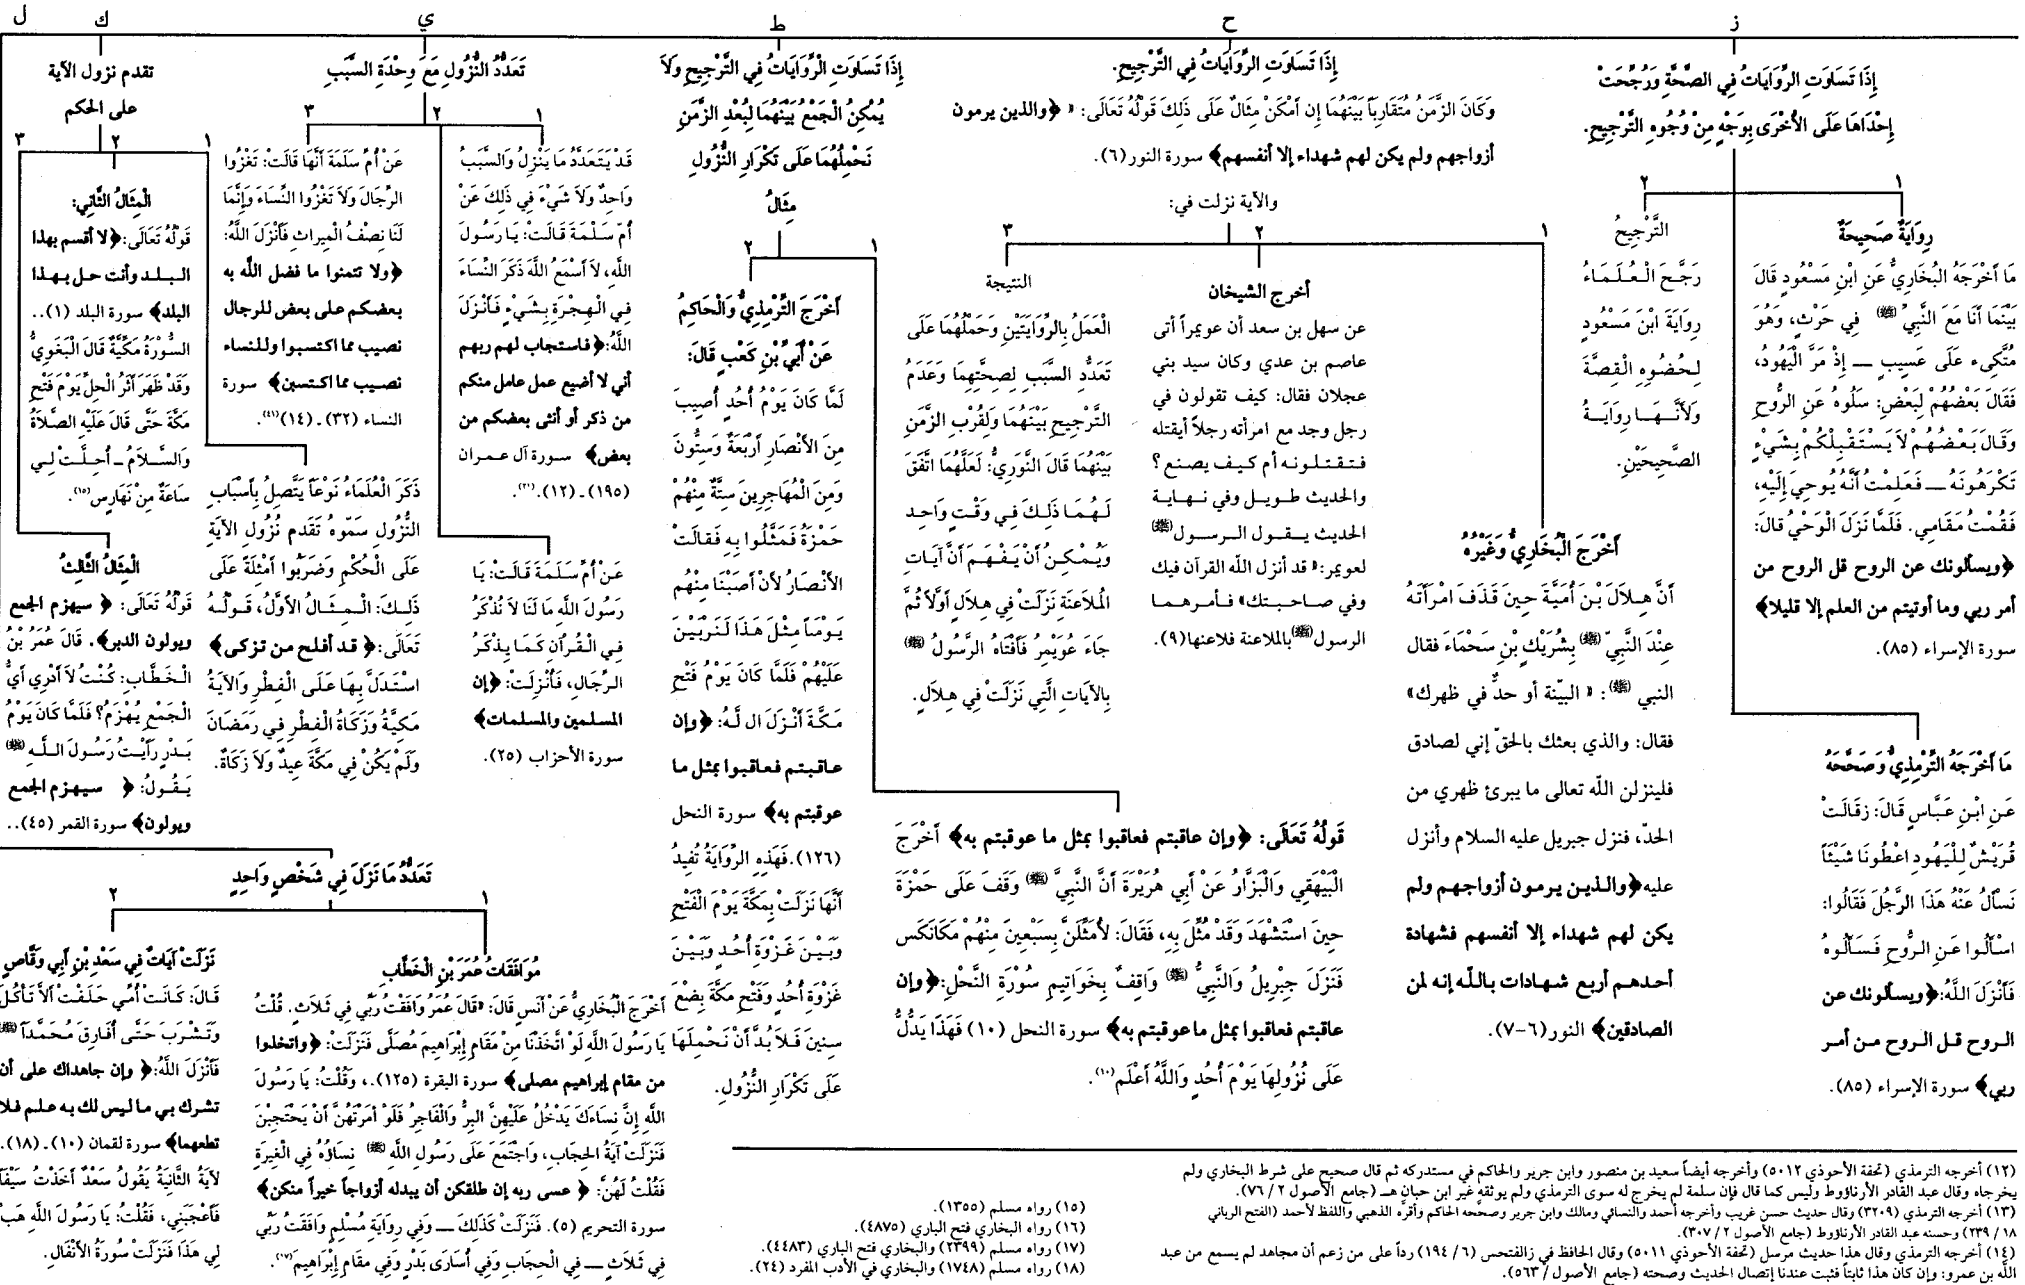 ز
إِذَا تَسَاوَتِ الرِّوَايَاتُ فِي الصِّحَّةِ وَرُجِّحَتْ
إِحْدَاهَا عَلَى الأُخْرَى بِوَجْهٍ مِنْ وُجُوهِ التَّرْجِيحِ.
١
رِوَايَةٌ صَحِيحَةٌ
مَا أَخْرَجَهُ البُخَارِيُّ عَنِ ابْنِ مَسْعُودٍ قَالَ
بَيْنَمَا أَنَا مَعَ النَّبِيِّ ﷺ فِي حَرْثٍ، وَهُوَ
مُتَّكِىء عَلَى عَسِيبٍ ــ إِذْ مَرَّ الْيَهُودُ،
فَقَالَ بَعْضُهُمْ لِبَعْضٍ: سَلُوهُ عَنِ الرُّوحِ
وَقَالَ بَعْضُهُمْ لاَ يَسْتَقْبِلْكُمْ بِشَيْءٍ
تَكْرَهُونَهُ ــ فَعَلِمْتُ أَنَّهُ يُوحِيَ إِلَيْهِ،
فَقُمْتُ مَقَامِي. فَلَمَّا نَزَلَ الْوَحْيُ قَالَ:
﴿ويسألونك عن الروح قل الروح من
أمر ربي وما أوتيتم من العلم إلا قليلا﴾
سورة الإسراء (٨٥).
٢
التَّرْجِيحُ
رَجَّحَ الْعُلَمَاءُ
رِوَايَةَ ابْنَ مَسْعُودٍ
لِحُضُوهِ الْقِصَّةَ
وَلأَنَّهَا رِوَايَةُ
الصَّحِيحَيْنِ.
مَا أَخْرَجَهُ التِّرْمِذِيُّ وَصَحَّحَهُ
عَنِ ابْنِ عَبَّاسٍ قَالَ: زقَالَتْ
قُرَيْشٌ لِلْيَهُودِ اعْطُونَا شَيْئاً
نَسأَلُ عَنْهُ هَذَا الرَّجُلَ فَقَالُوا:
اسْأَلُوا عَنِ الرُّوحِ فَسَأَلُوهُ
فَأَنْزَلَ اللَّهُ: ﴿ويسألونك عن
الروح قل الروح من أمر
ربي﴾ سورة الإسراء (٨٥).
ح
إِذَا تَسَاوَتِ الرِّوَايَاتُ فِي التَّرْجِيحِ.
وَكَانَ الزَّمَنُ مُتَقَارِباً بَيْنَهُمَا إِن أَمْكَنْ مِثَالٌ عَلَى ذَلِكَ قَوْلُهُ تَعَالَى: « ﴿والذين يرمون
أزواجهم ولم يكن لهم شهداء إلا أنفسهم﴾ سورة النور (٦).
والآية نزلت في:
١
أَخْرَجَ الْبُخَارِيُّ وَغَيْرُهُ
أَنَّ هِلاَلَ بْنَ أُمَيَّةَ حِينَ قَذَفَ امْرَأَتَهُ
عِنْدَ النَّبِيِّ ﷺ بِشُرَيْكِ بْنِ سَحْمَاءَ فقال
النبي ﷺ: « البيّنة أو حدٌّ في ظهرك»
فقال: والذي بعثك بالحقّ إني لصادق
فلينزلن اللّه تعالى ما يبرئ ظهري من
الحدّ، فنزل جبريل عليه السلام وأنزل
عليه ﴿والذين يرمون أزواجهم ولم
يكن لهم شهداء إلا أنفسهم فشهادة
أحدهم أربع شهادات باللّه إنه لمن
الصادقين﴾ النور (٦-٧).
٢
أخرج الشيخان
عن سهل بن سعد أن عويمراً أتى
عاصم بن عدي وكان سيد بني
عجلان فقال: كيف تقولون في
رجل وجد مع امرأته رجلاً أيقتله
فتقتلونه أم كيف يصنع؟
والحديث طويل وفي نهاية
الحديث يقول الرسول ﷺ
لعويمر: « قد أنزل اللّه القرآن فيك
وفي صاحبتك» فأمرهما
الرسول ﷺ بالملاعنة فلاعنها (٩).
٣
النتيجة
الْعَمَلُ بِالرِّوَايَتَيْنِ وَحَمْلُهُمَا عَلَى
تَعَدُّدِ السَّبَبِ لِصِحَّتِهِمَا وَعَدَمُ
التَّرْجِيحِ بَيْنَهُمَا وَلِقُرْبِ الزَّمَنِ
بَيْنَهُمَا قَالَ النَّوَرِيُّ: لَعَلَّهُمَا اتَّفَقَ
لَهُمَا ذَلِكَ فِي وَقْتٍ وَاحِدٍ
وَيُمْكِنُ أَنْ يَفْهَمَ أَنَّ آيَاتِ
الْمُلاَعَنَةِ نَزَلَتْ فِي هِلاَلٍ أَوَّلاً ثُمَّ
جَاءَ عُوَيْمِرُ فَأَفْتَاهُ الرَّسُولُ ﷺ
بِالآيَاتِ الَّتِي نَزَلَتْ فِي هِلاَلٍ.
ط
إِذَا تَسَاوَتِ الْرِّوَايَاتُ فِي التَّرْجِيحِ وَلاَ
يُمْكِنُ الْجَمْعُ بَيْنَهُمَا لِبُعْدِ الزَّمَنِ
نَحْمِلُهُمَا عَلَى تَكْرَارِ النُّزُولِ
مِثَالُ
١
قَوْلُهُ تَعَالَى: ﴿وإن عاقبتم فعاقبوا بمثل ما عوقبتم به﴾ أَخْرَجَ
الْبَيْهَقِي وَالْبَزَّارُ عَنْ أَبِي هُرَيْرَةَ أَنَّ النَّبِيَّ ﷺ وَقَفَ عَلَى حَمْزَةَ
حِينَ اسْتَشْهَدَ وَقَدْ مُثِّلَ بِهِ، فَقَالَ: لأُمَثِّلَنَّ بِسَبْعِينَ مِنْهُمْ مَكَانَكَس
فَنَزَلَ جِبْرِيلُ وَالنَّبِيُّ ﷺ وَاقِفٌ بِخَوَاتِيمِ سُورَةِ النَّحْلِ: ﴿وإن
عاقبتم فعاقبوا بمثل ما عوقبتم به﴾ سورة النحل (١٠) فَهَذَا يَدُلُّ
عَلَى نُزُولِهَا يَوْمَ أُحُدٍ وَاللَّهُ أَعْلَم(١٠).
٢
أَخْرَجَ التِّرْمِذِيُّ وَالْحَاكِمُ
عَنْ أُبَيِّ بْنِ كَعْبٍ قَالَ:
لَمَّا كَانَ يَوْمُ أُحُدٍ أُصِيبَ
مِنَ الأَنْصَارِ أَرْبَعَةٌ وَسِتُّونَ
وَمِنَ الْمُهَاجِرِينَ سِتَّةٌ مِنْهُمْ
حَمْزَةُ فَمَثَّلُوا بِهِ فَقَالَتْ
الأَنْصَارُ لأَنْ أَصَبْنَا مِنْهُم
يَوْمَاً مِثْلَ هَذَا لَنُرْبَيْنَ
عَلَيْهُمْ فَلَمَّا كَانَ يَوْمُ فَتْحِ
مَكَّةَ أَنْزَلَ ال لَّهُ: ﴿وإن
عاقبتم فعاقبوا بمثل ما
عوقبتم به﴾ سورة النحل
(١٢٦). فَهَذِهِ الرِّوَايَةُ تُفِيدُ
أَنَّهَا نَزَلَتْ بِمَكَّةَ يَوْمَ الْفَتْحِ
وَبَيْنَ غَزْوَةِ أُحُدٍ وَبَيْنَ
غَزْوَةِ أُحُدٍ وَفَتْحِ مَكَّةَ بِضْعُ
سِنِينَ فَلاَ بُدَّ أَنْ نَحْمِلَهَا
عَلَى تَكْرَارِ النُّزُولِ.
ي
تَعَدُّدُ النُّزُولِ مَعَ وِحْدَةِ السَّبَبِ
١
قَدْ يَتَعَدَّدُ مَا يَنْزِلُ وَالسَّبَبُ
وَاحِدٌ وَلاَ شَيْءَ فِي ذَلِكَ عَنْ
أُمّ سَلَمَةَ قَالَتْ: يَا رَسُولَ
اللَّهِ، لاَ أَسْمَعُ اللَّهَ ذَكَرَ النِّسَاءَ
فِي الْهِجْرَةِ بِشَيْءٍ فَأَنْزَلَ
اللَّهُ: ﴿فاستجاب لهم ربهم
أني لا أضيع عمل عامل منكم
من ذكر أو أنثى بعضكم من
بعض﴾ سورة آل عمران
(١٩٥) ـ (١٢).
٢
عَنْ أُمِّ سَلَمَةَ قَالَتْ: يَا
رَسُولَ اللَّهِ مَا لَنَا لاَ نُذْكَرُ
فِي الْقُرآنِ كَمَا يِذْكَرُ
الرِّجَالِ، فَأُنْزِلَتْ: ﴿إن
المسلمين والمسلمات﴾
سورة الأحزاب (٢٥).
٣
عَنْ أُمِّ سَلَمَةَ أَنَّهَا قَالَتْ: تَغْزُوا
الرِّجَالَ وَلاَ تَغْزُوا النِّسَاءَ وَإِنَّمَا
لَنَا نِصْفُ الْمِيرَاثِ فَأَنْزَلَ اللَّهُ:
﴿ولا تتمنوا ما فضل اللّه به
بعضكم على بعض للرجال
نصيب مما اكتسبوا وللنساء
نصيب مما اكتسبن﴾ سورة
النساء (٣٢) ـ (١٤).
ك
تقدم نزول الآية
على الحكم
١
ذَكَرَ الْعُلَمَاءُ نَوْعَاً يَتَّصِلُ بِأَسْبَابِ
النُّزُولِ سَمّوهُ تَقَدم نُزُولِ الآيَةِ
عَلَى الْحُكْمِ وَضَرَبُوا أَمْثِلَةً عَلَى
ذَلِكَ: الْمِثَالُ الأَوَّلُ، قَوْلُهُ
تَعَالَى: ﴿ قد أفلح من تزكى﴾
اسْتَدَلَّ بِهَا عَلَى الْفِطْرِ وَالآيَةُ
مَكِيَّةُ وَزَكَاةُ الْفِطْرِ فِي رَمَضَانَ
وَلَمْ يَكُنْ فِي مَكَّةَ عِيدٌ وَلاَ زَكَاةٌ.
٢
الْمِثَالُ الثَّانِي:
قَوْلُهُ تَعَالَى: ﴿لا أقسم بهذا
البلد وأنت حل بهذا
البلد﴾ سورة البلد (١)..
السُّورَةُ مَكِّيَّةٌ قَالَ الْبَغَوِيُّ
وَقَدْ ظَهَرَ أَثَرُ الْحِلِّ يَوْمَ فَتْحِ
مَكَّةَ حَتَّى قَالَ عَلَيْهِ الصَّلاَةُ
وَالسَّلاَمُ ـ أُحِلَّتْ لِي
سَاعَةٌ مِنْ نَهَارٍس(١٥).
٣
الْمِثَالُ الثَّالِثُ
قَوْلُهُ تَعَالَى: ﴿ سيهزم الجمع
ويولون الدبر﴾. قَالَ عُمَرُ بْنُ
الْخَطَّابِ: كُنْتُ لاَ أَدْرِي أَيُّ
الْجَمْعِ يُهْزَمُ؟ فَلَمَّا كَانَ يَوْمُ
بَدْرٍ رَأَيْتُ رَسُولَ اللَّهِ ﷺ
يَقُولُ: ﴿ سيهزم الجمع
ويولون﴾ سورة القمر (٤٥)..
ل
تَعَدُّدُ مَا نَزَلَ فِي شَخْصٍ وَاحِدٍ
١
مُوَافَقَاتُ عُمَرَ بْنِ الْخَطَّابِ
أَخْرَجَ الْبُخَارِيُّ عَنْ أَنَسٍ قَالَ: «قَالَ عُمَرُ وَافَقْتُ رَبِّي فِي ثَلاَثٍ. قُلْتُ
يَا رَسُولَ اللَّهِ لَوْ اتَّخَذْنَا مِنْ مَقَامِ إِبْرَاهِيمَ مُصَلَّى فَنَزَلَتْ: ﴿واتخذوا
من مقام إبراهيم مصلى﴾ سورة البقرة (١٢٥).، وَقُلْتُ: يَا رَسُولَ
اللَّهِ إِنَّ نِسَاءَكَ يَدْخُلُ عَلَيْهِنَّ البِرُّ وَالْفَاجِرُ فَلَوْ أمَرْتَهُنَّ أَنْ يَحْتَجِبْنَ
فَنَزَلَتْ آيَةُ الحِجَابِ، وَاجْتَمَعَ عَلَى رَسُولِ اللَّهِ ﷺ نِسَاؤُهُ فِي الْغَيْرَةِ
فَقُلْتُ لَهُنَّ: ﴿ عسى ربه إن طلقكن أن يبدله أزواجاً خيراً منكن﴾
سورة التحريم (٥). فَنَزَلَتْ كَذَلِكَ ــ وَفِي رِوَايَةِ مُسْلِمٍ وَافَقْتُ رَبِّي
فِي ثَلاَثٍ ــ فِي الْحِجَابِ وَفِي أُسَارَى بَدْرٍ وَفِي مَقَامِ إِبْرَاهِيمَ(١٧).
٢
نَزَلَتْ آيَاتٌ فِي سَعْدِ بْنِ أَبِي وَقَّاصٍ
قَالَ: كَانَتْ أُمِّي حَلَفَتْ أَلاَّ تَأْكُلَ
وَتَشْرَبَ حَتَّى أُفَارِقَ مُحَمَّداً ﷺ
فَأَنْزَلَ اللَّهُ: ﴿ وإن جاهداك على أن
تشرك بي ما ليس لك به علم فلا
تطعهما﴾ سورة لقمان (١٠) ـ (١٨).
لآيَةُ الثَّانِيَةُ يَقُولُ سَعْدٌ أَخَذْتُ سَيْفَاً
فَأَعْجَبَنِي، فَقُلْتُ: يَا رَسُولَ اللَّهِ هَبْ
لِي هَذَا فَنَزَلَتْ سُورَةُ الأَنْفَالِ.
(١٢) أخرجه الترمذي (تحفة الأحوذي ٥٠١٢) وأخرجه أيضاً سعيد بن منصور وابن جرير والحاكم في مستدركه ثم قال صحيح على شرط البخاري ولم
يخرجاه وقال عبد القادر الأرناؤوط وليس كما قال فإن سلمة لم يخرج له سوى الترمذي ولم يوثقه غير ابن حبان هـ (جامع الأصول ٢ / ٧٦).
(١٣) أخرجه الترمذي (٣٢٠٩) وقال حديث حسن غريب وأخرجه أحمد والنسائي ومالك وابن جرير وصححه الحاكم وأقره الذهبي واللفظ لأحمد (الفتح الرباني
١٨ / ٢٣٩) وحسنه عبد القادر الأرناؤوط (جامع الأصول ٢ / ٣٠٧).
(١٤) أخرجه الترمذي وقال هذا حديث مرسل (تحفة الأحوذي ٥٠١١) وقال الحافظ في زالفتحس (٦ / ١٩٤) رداً على من زعم أن مجاهد لم يسمع من عبد
اللّه بن عمرو: وإن كان هذا ثابتاً فثبت عندنا إتصال الحديث وصحته (جامع الأصول / ٥٦٣).
(١٥) رواه مسلم (١٣٥٥).
(١٦) رواه البخاري فتح الباري (٤٨٧٥).
(١٧) رواه مسلم (٢٣٩٩) والبخاري فتح الباري (٤٤٨٣).
(١٨) رواه مسلم (١٧٤٨) والبخاري في الأدب المفرد (٢٤).